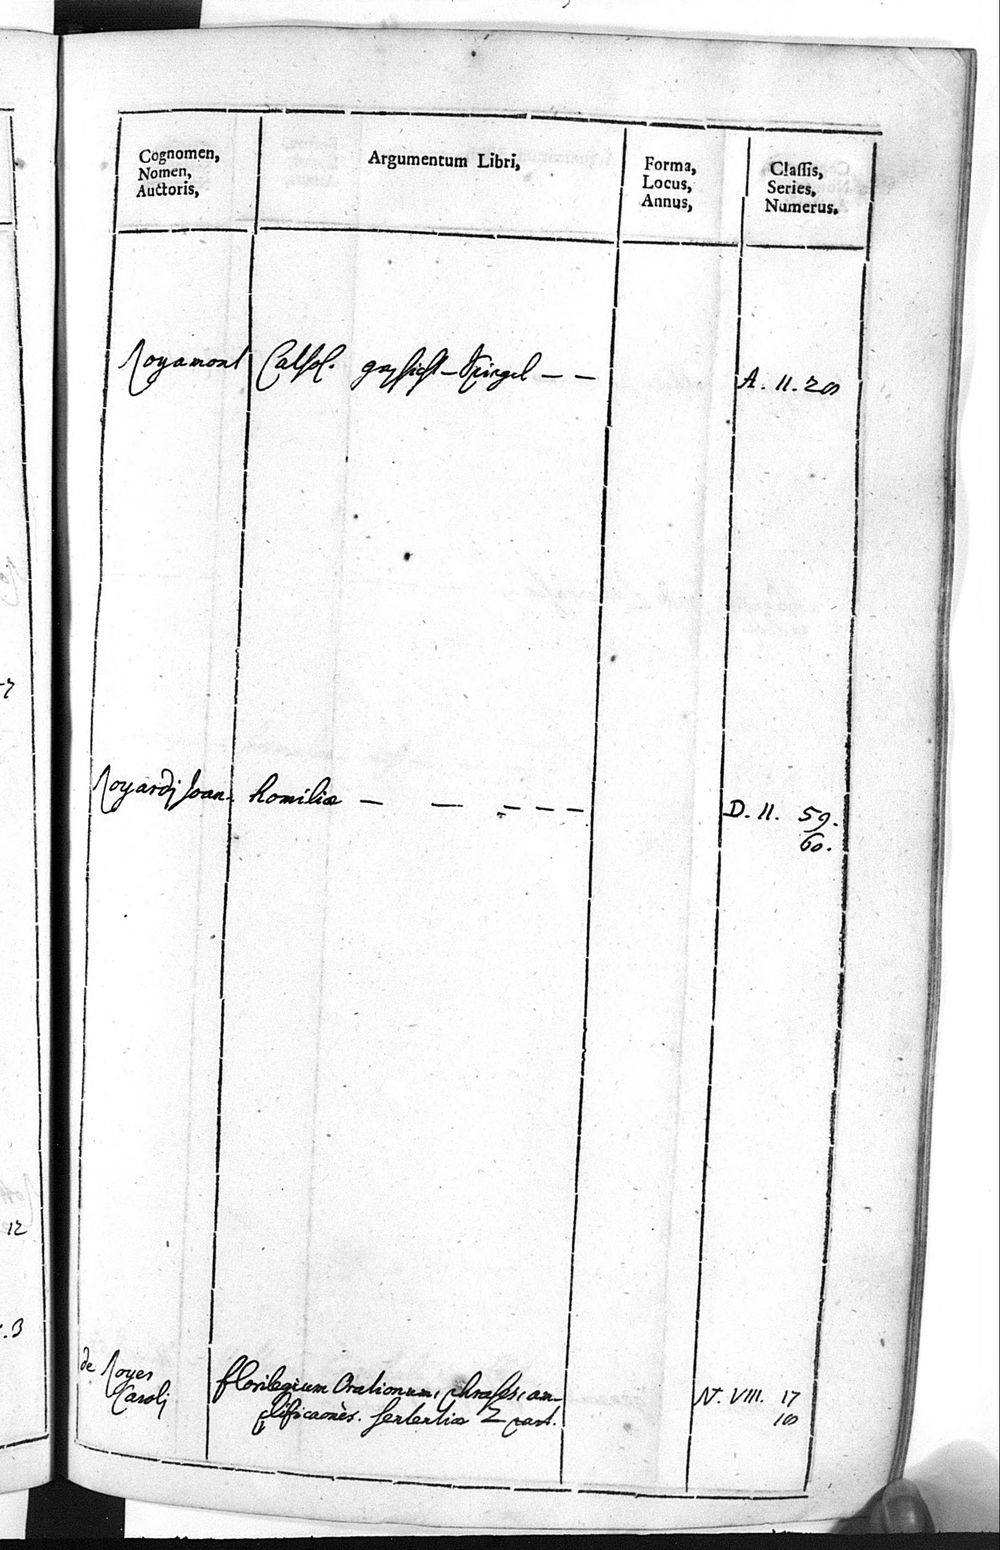 Cognomen,
Nomen,
Auctoris,
Argumentum Libri,
Forma,
Locus,
Annus,
Classis,
Series,
Numerus.
Royamont Cathol. Spiegel – – A. II. 28
Royardj Joan. homiliæ – – – – – D. II. 59.
60.
de Royer florilegium Orationum, phrases, am- N. VIII. 17
Caroli plificaönès. sententiæ 2 part. 18
12
3